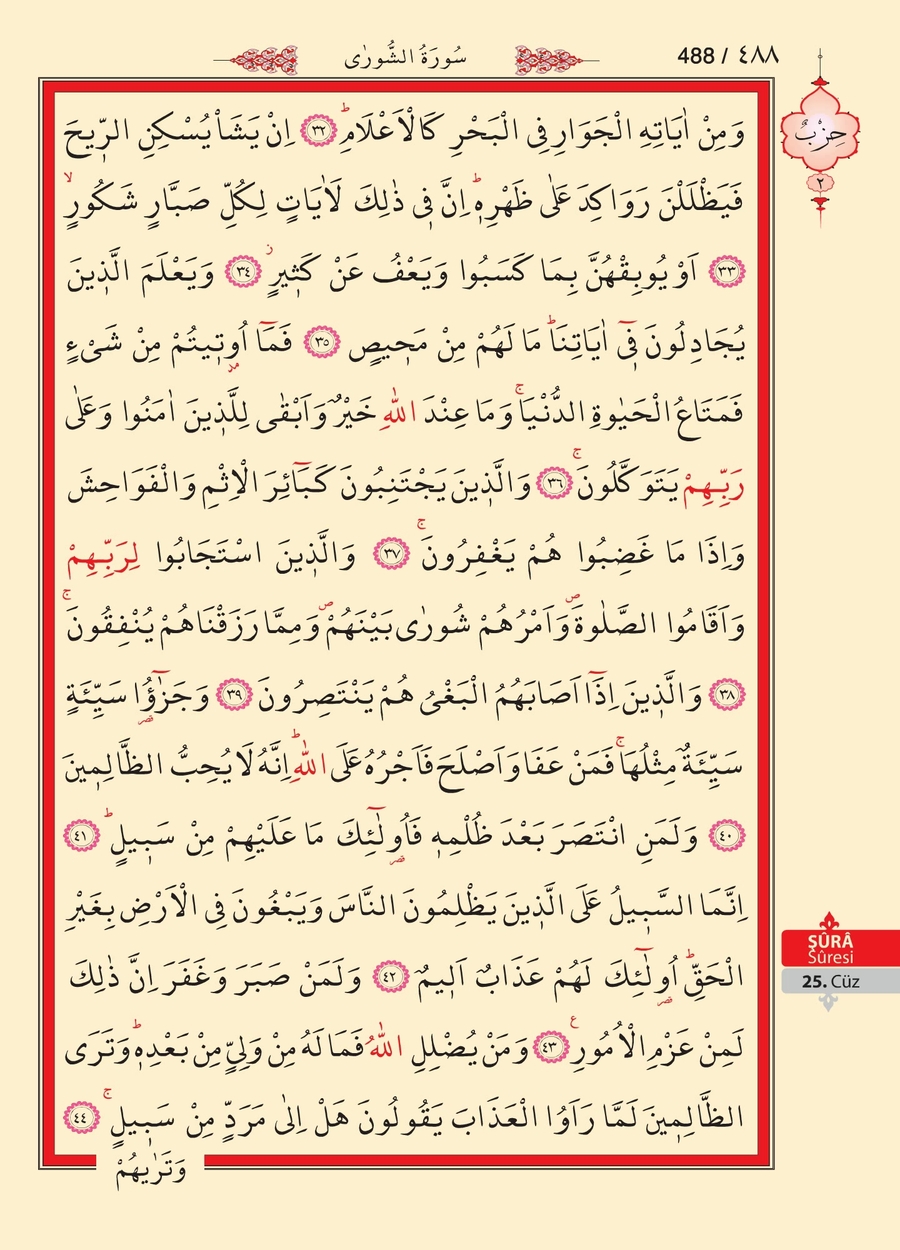 سُورَةُ الشُّورٰى
488 / ٤٨٨
حِزْبٌ
٢
وَمِنْ اٰيَاتِهِ الْجَوَارِ فِى الْبَحْرِ كَالْاَعْلَامِۜ ﴿٣٢﴾ اِنْ يَشَأْ يُسْكِنِ الرّ۪يحَ
فَيَظْلَلْنَ رَوَاكِدَ عَلٰى ظَهْرِه۪ۜ اِنَّ ف۪ى ذٰلِكَ لَاٰيَاتٍ لِكُلِّ صَبَّارٍ شَكُورٍۙ
﴿٣٣﴾ اَوْ يُوبِقْهُنَّ بِمَا كَسَبُوا وَيَعْفُ عَنْ كَث۪يرٍۘ ﴿٣٤﴾ وَيَعْلَمَ الَّذ۪ينَ
يُجَادِلُونَ ف۪ٓى اٰيَاتِنَاۜ مَا لَهُمْ مِنْ مَح۪يصٍ ﴿٣٥﴾ فَمَٓا اُو۫ت۪يتُمْ مِنْ شَىْءٍ
فَمَتَاعُ الْحَيٰوةِ الدُّنْيَاۚ وَمَا عِنْدَ اللّٰهِ خَيْرٌ وَاَبْقٰى لِلَّذ۪ينَ اٰمَنُوا وَعَلٰى
رَبِّهِمْ يَتَوَكَّلُونَۚ ﴿٣٦﴾ وَالَّذ۪ينَ يَجْتَنِبُونَ كَبَٓائِرَ الْاِثْمِ وَالْفَوَاحِشَ
وَاِذَا مَا غَضِبُوا هُمْ يَغْفِرُونَۚ ﴿٣٧﴾ وَالَّذ۪ينَ اسْتَجَابُوا لِرَبِّهِمْ
وَاَقَامُوا الصَّلٰوةَۖ وَاَمْرُهُمْ شُورٰى بَيْنَهُمْۖ وَمِمَّا رَزَقْنَاهُمْ يُنْفِقُونَۚ
﴿٣٨﴾ وَالَّذ۪ينَ اِذَٓا اَصَابَهُمُ الْبَغْىُ هُمْ يَنْتَصِرُونَ ﴿٣٩﴾ وَجَزٰٓؤُ۬ا سَيِّئَةٍ
سَيِّئَةٌ مِثْلُهَاۚ فَمَنْ عَفَا وَاَصْلَحَ فَاَجْرُهُ عَلَى اللّٰهِۜ اِنَّهُ لَا يُحِبُّ الظَّالِم۪ينَ
﴿٤٠﴾ وَلَمَنِ انْتَصَرَ بَعْدَ ظُلْمِه۪ فَاُو۬لٰٓئِكَ مَا عَلَيْهِمْ مِنْ سَب۪يلٍۜ ﴿٤١﴾
اِنَّمَا السَّب۪يلُ عَلَى الَّذ۪ينَ يَظْلِمُونَ النَّاسَ وَيَبْغُونَ فِى الْاَرْضِ بِغَيْرِ
الْحَقِّۜ اُو۬لٰٓئِكَ لَهُمْ عَذَابٌ اَل۪يمٌ ﴿٤٢﴾ وَلَمَنْ صَبَرَ وَغَفَرَ اِنَّ ذٰلِكَ
لَمِنْ عَزْمِ الْاُمُورِ۟ ﴿٤٣﴾ وَمَنْ يُضْلِلِ اللّٰهُ فَمَا لَهُ مِنْ وَلِىٍّ مِنْ بَعْدِه۪ۜ وَتَرَى
الظَّالِم۪ينَ لَمَّا رَاَوُا الْعَذَابَ يَقُولُونَ هَلْ اِلٰى مَرَدٍّ مِنْ سَب۪يلٍۚ ﴿٤٤﴾
وَتَرٰيهُمْ
ŞÛRÂ
Sûresi
25. Cüz